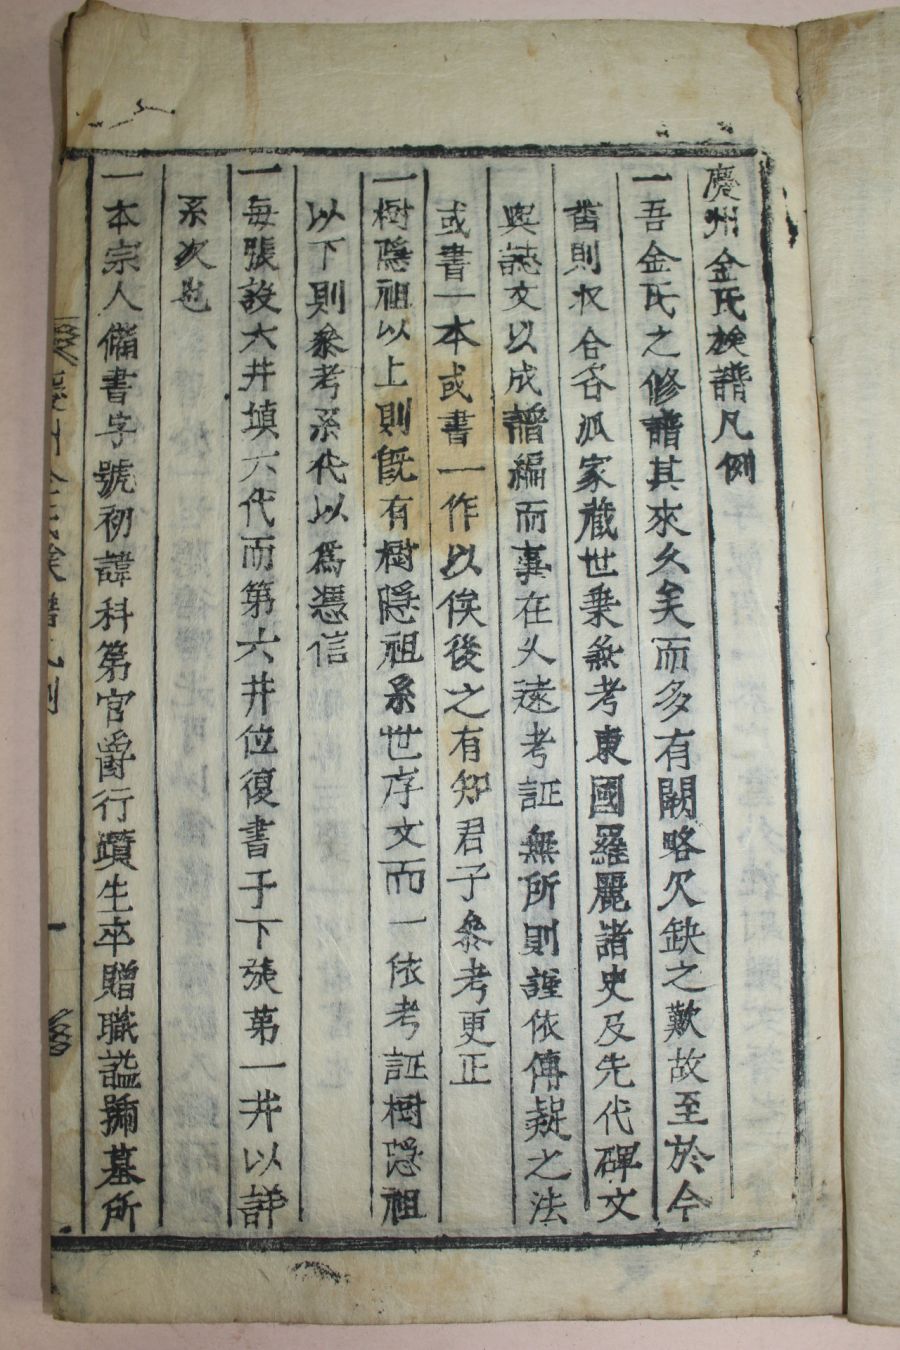 慶州金氏族譜凡例
一吾金氏之修譜其來久矣而多有闕略欠缺之歎故至於今
畨則収合各派家蔵世乗叅考東國羅麗諸史及先代碑文
與誌文以成譜編而事在久遠考証無所則謹依傳疑之法
或書一本或書一作以俟後之有知君子叅考更正
一樹隠祖以上則旣有樹隠祖系世序文而一依考証樹隠祖
以下則叅考系代以爲憑信
一每張設六井填六代而第六井位復書于下張第一井以詳
系次也
一本宗人備書字號初諱科第官爵行蹟生卒贈職諡號墓所
慶州金氏族譜凡例
一